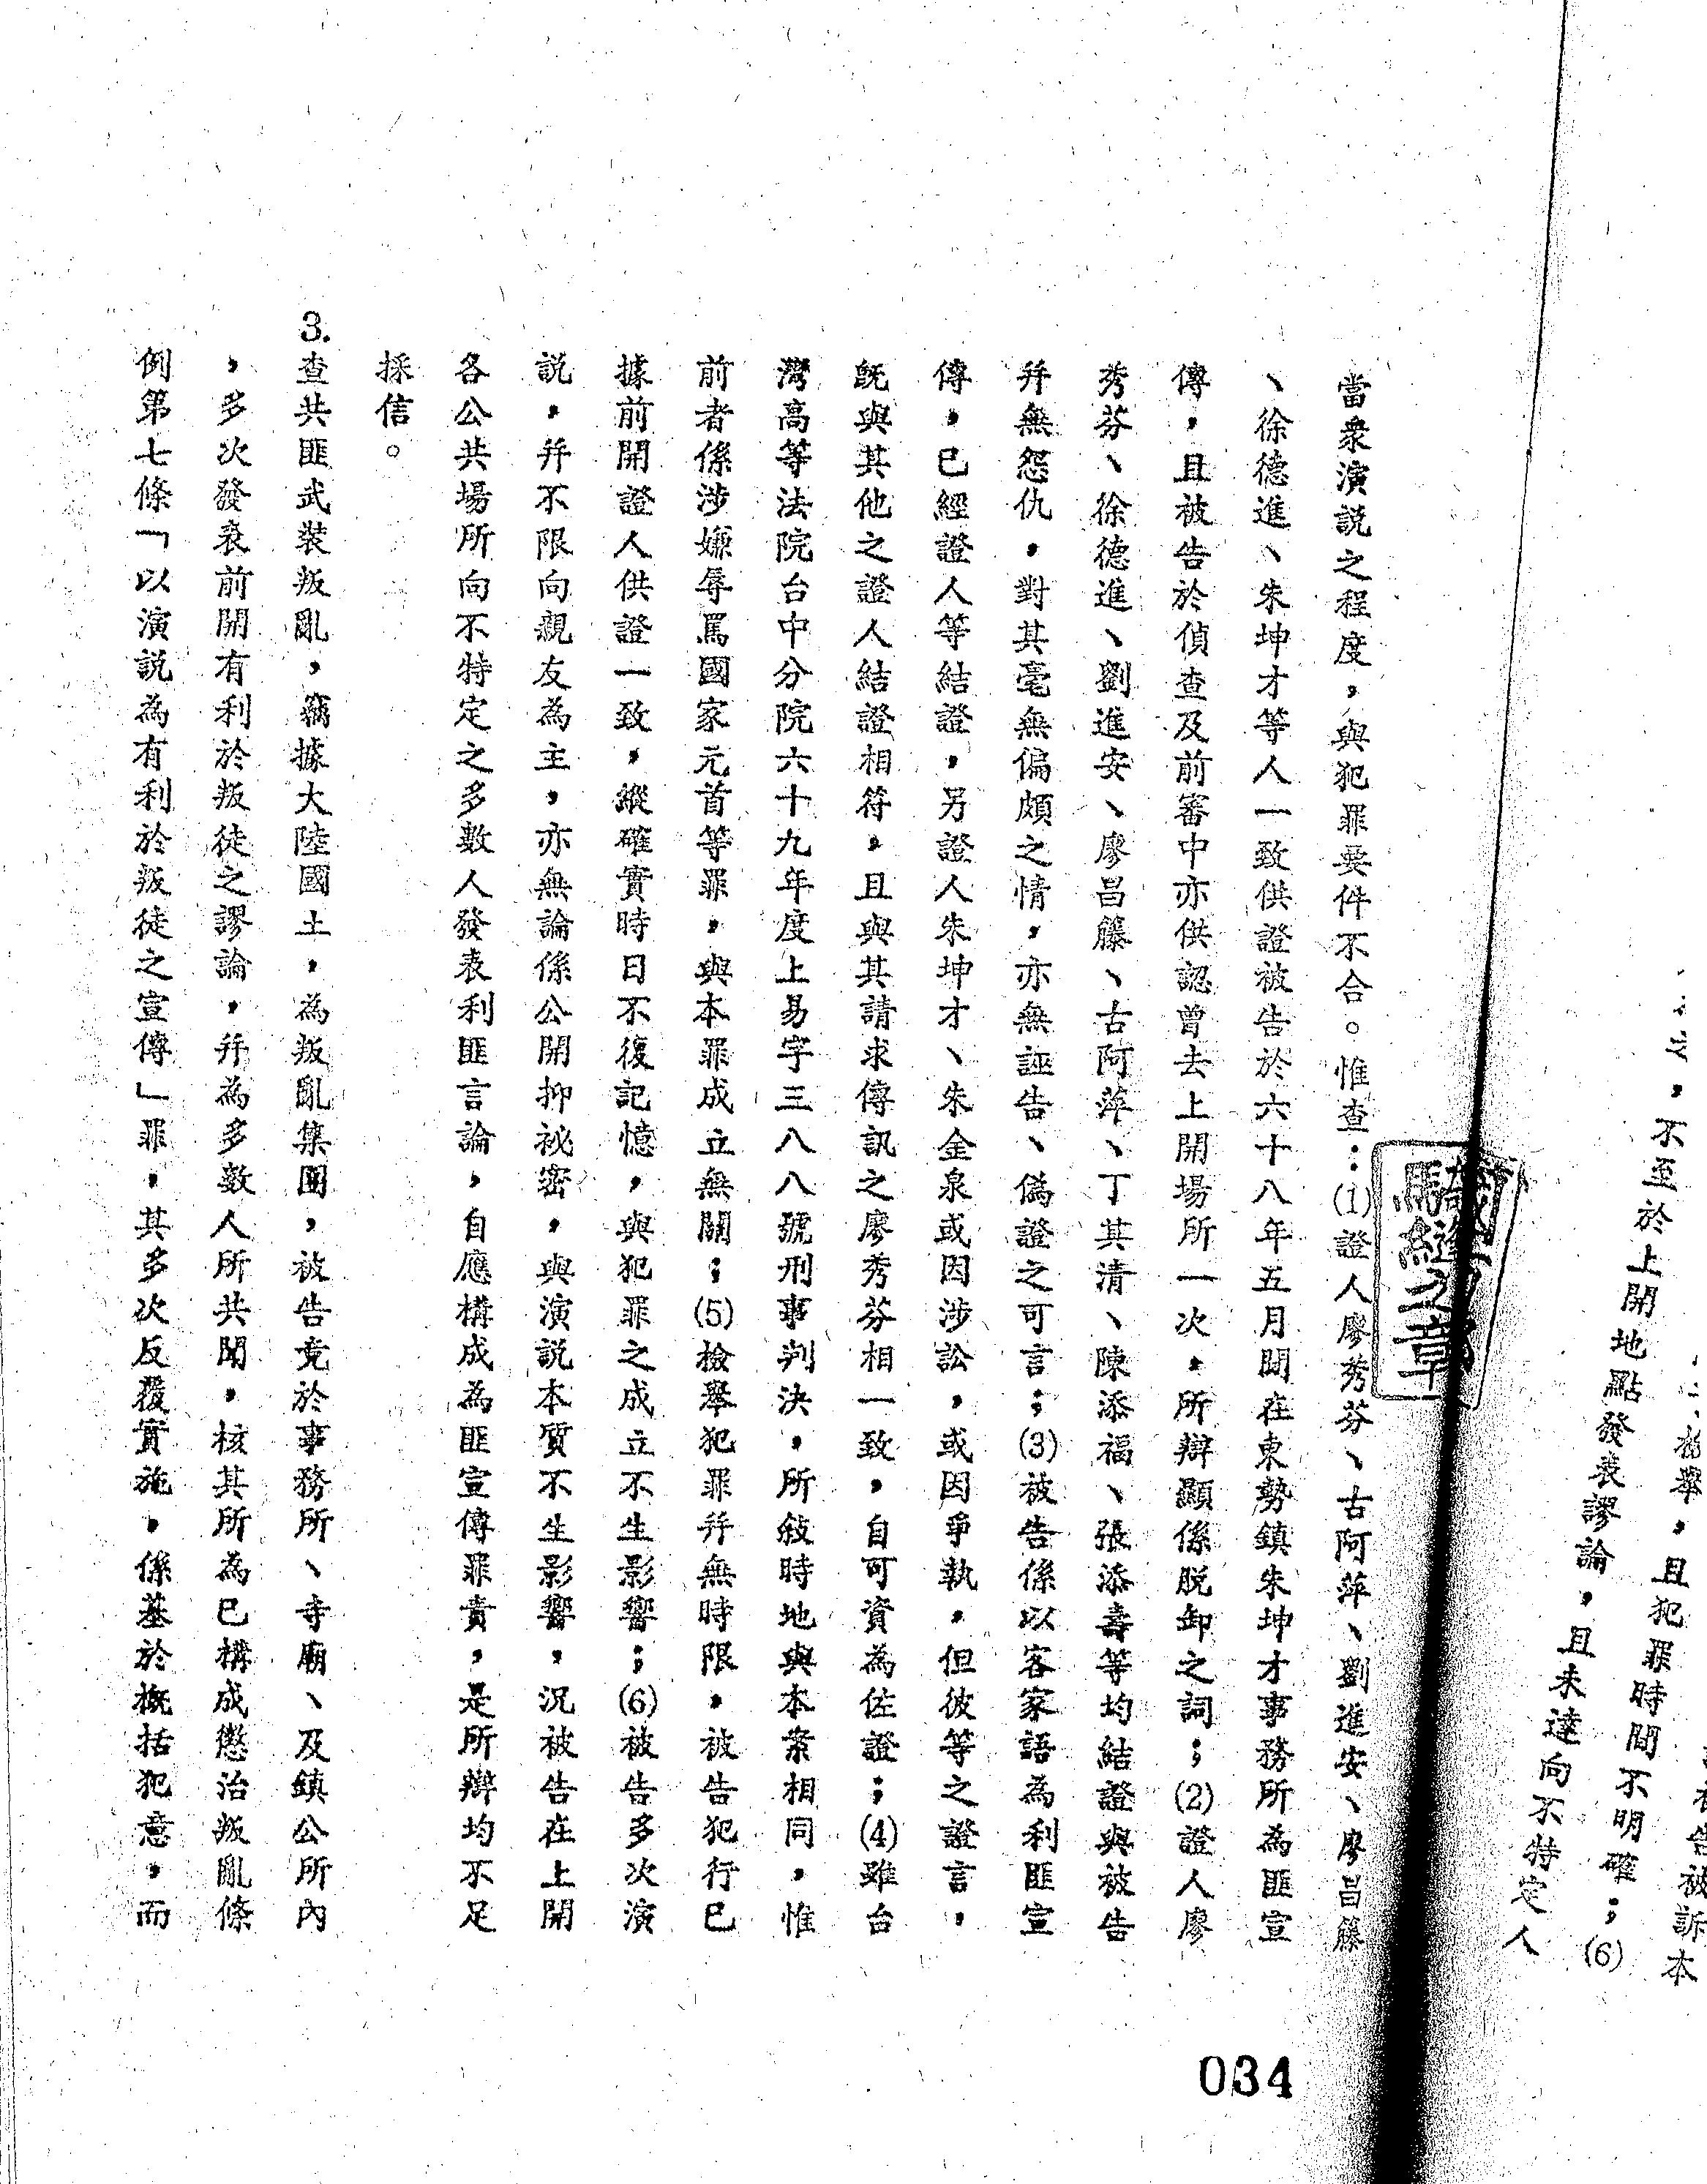 本告被訴
檢舉,且犯罪時間不明確;(6)
之,不至於上開地點發表謬論,且未達向不特定人
當衆演説之程度,與犯罪要件不合。惟查:(1)證人廖秀芬、古阿萍、劉進安、廖昌籐
、徐德進、朱坤才等人一致供證被告於六十八年五月間在東勢鎮朱坤才事務所為匪宣
傳,且被告於偵查及前審中亦供認曾去上開場所一次,所辯顯係脱卸之詞;(2)證人廖
秀芬、徐德進、劉進安、廖昌籐、古阿萍、丁其清、陳添福、張添壽等均結證與被告
幷無怨仇,對其毫無偏頗之情,亦無誣告、偽證之可言;(3)被告係以客家語為利匪宣
傳,已經證人等結證,另證人朱坤才、朱金泉或因涉訟,或因爭執,但彼等之證言,
既與其他之證人結證相符,且與其請求傳訊之廖秀芬相一致,自可資為佐證;(4)雖台
灣高等法院台中分院六十九年度上易字三八八號刑事判決,所敍時地與本案相同,惟
前者係涉嫌辱罵國家元首等罪,與本罪成立無關;(5)檢舉犯罪幷無時限,被告犯行已
據前開證人供證一致,縱確實時日不復記憶,與犯罪之成立不生影響;(6)被告多次演
説,幷不限向親友為主,亦無論係公開抑祕密,與演説本質不生影響,況被告在上開
各公共場所向不特定之多數人發表利匪言論,自應構成為匪宣傳罪責,是所辯均不足
採信。
3.查共匪武裝叛亂,竊據大陸國土,為叛亂集團,被告竟於事務所、寺廟、及鎮公所內
,多次發表前開有利於叛徒之謬論,幷為多數人所共聞,核其所為已構成懲治叛亂條
例第七條「以演説為有利於叛徒之宣傳」罪,其多次反覆實施,係基於概括犯意,而
騎縫之章
034